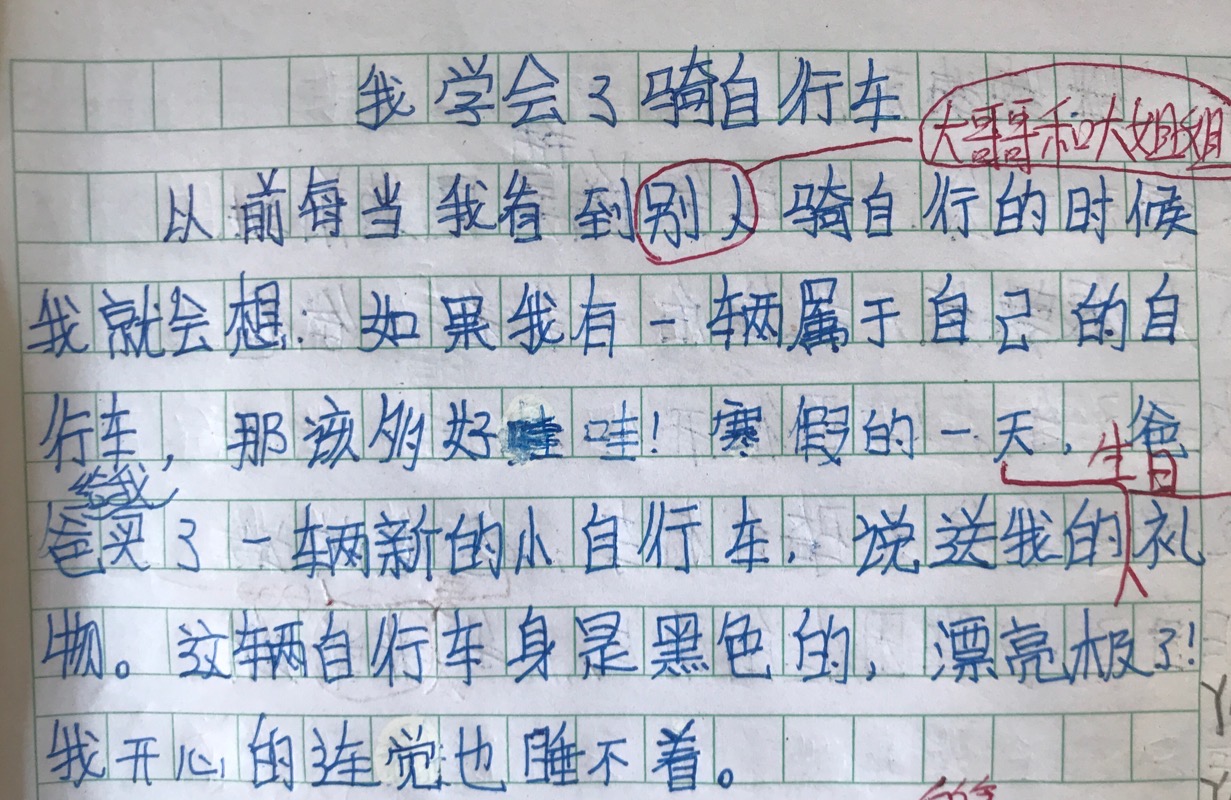 我学会了骑自行车
大哥哥和大姐姐
以前每当我看到别人骑自行的时候
我就会想：如果我有一辆属于自己的自
行车，那该多好哇！寒假的一天，爸
给我
生日
爸买了一辆新的小自行车，说送我的礼
物。这辆自行车身是黑色的，漂亮极了！
我开心的连觉也睡不着。